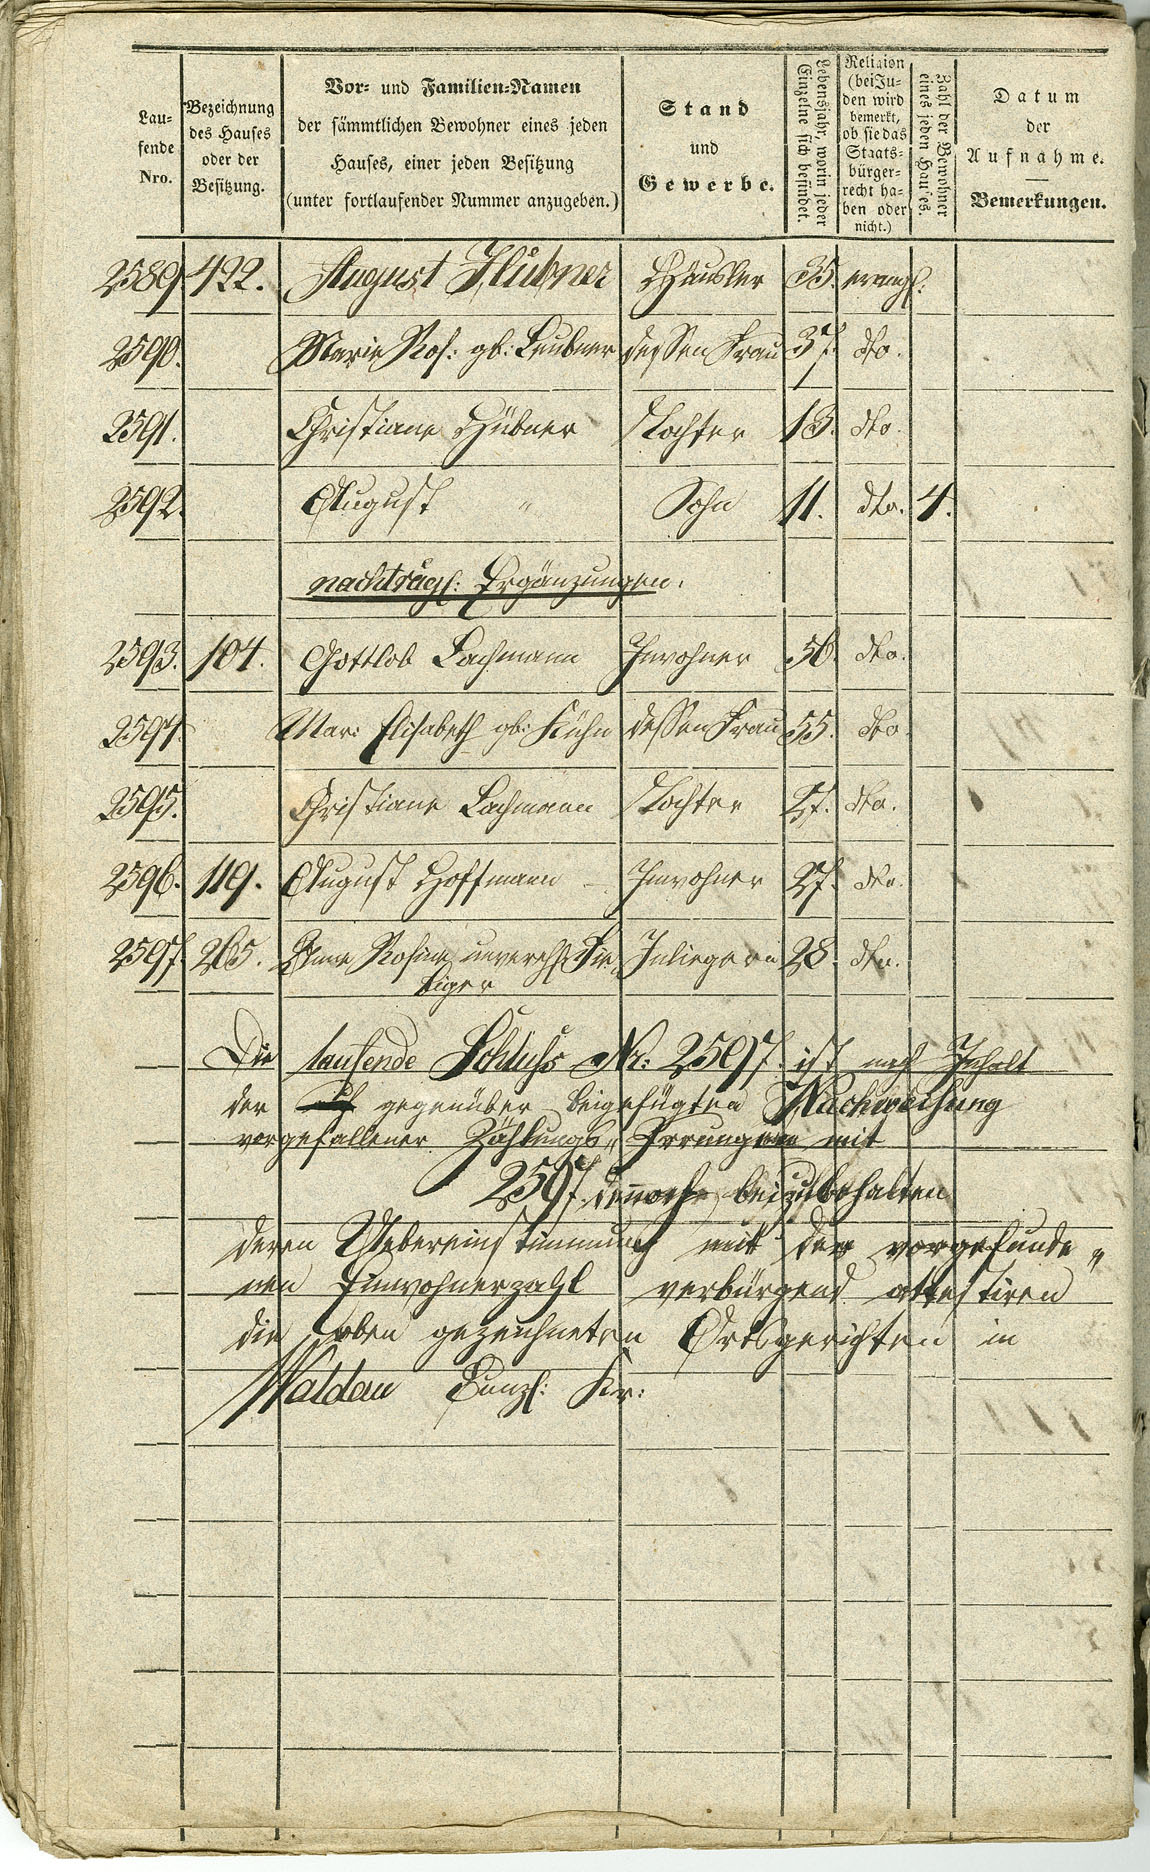 Lau-
fende
Nro.
Bezeichnung
des Hauses
oder der
Besitzung.
Vor- und Familien-Namen
der sämmtlichen Bewohner eines jeden
Hauses, einer jeden Besitzung
(unter fortlaufender Nummer anzugeben.)
Stand
und
Gewerbe.
Lebensjahr, worin jeder
Einzelne sich befindet.
Religion
(bei Ju-
den wird
bemerkt,
ob sie das
Staats-
bürger-
recht ha-
ben oder
nicht.)
Zahl der Bewohner
eines jeden Hauses.
Datum
der
Aufnahme.
Bemerkungen.
2589 422. August Hübner Häusler 35. evangl.
2590. Marie Ros: gb: Leubner dessen Frau 37. dto.
2591. Christiane Hübner Tochter 13. dto.
2592. August " Sohn 11. dto. 4.
nachträgl: Ergänzungen.
2593. 104. Gottlob Lachmann Inwohner 56. dto.
2594. Mar: Elisabeth gb: Kühn dessen Frau 55. dto.
2595. Christiane Lachmann Tochter 27. dto.
2596. 119. August Hoffmann Inwohner 27. dto.
2597. 265. Anne Rosine unverehl. Inliegerin 28. dto.
Die laufende Schluss Nr: 2597. ist nach Inhalt
der gegenüber beigefügten Nachweisung
vorgefallener Zählungs-Irrungen mit
2597. dennoch beizubehalten
deren Uebereinstimmung mit der vorgefunde-
nen Einwohnerzahl verbürgend attestiren
die oben gezeichneten Ortsgerichten in
Waldau Bunzl: Kr: